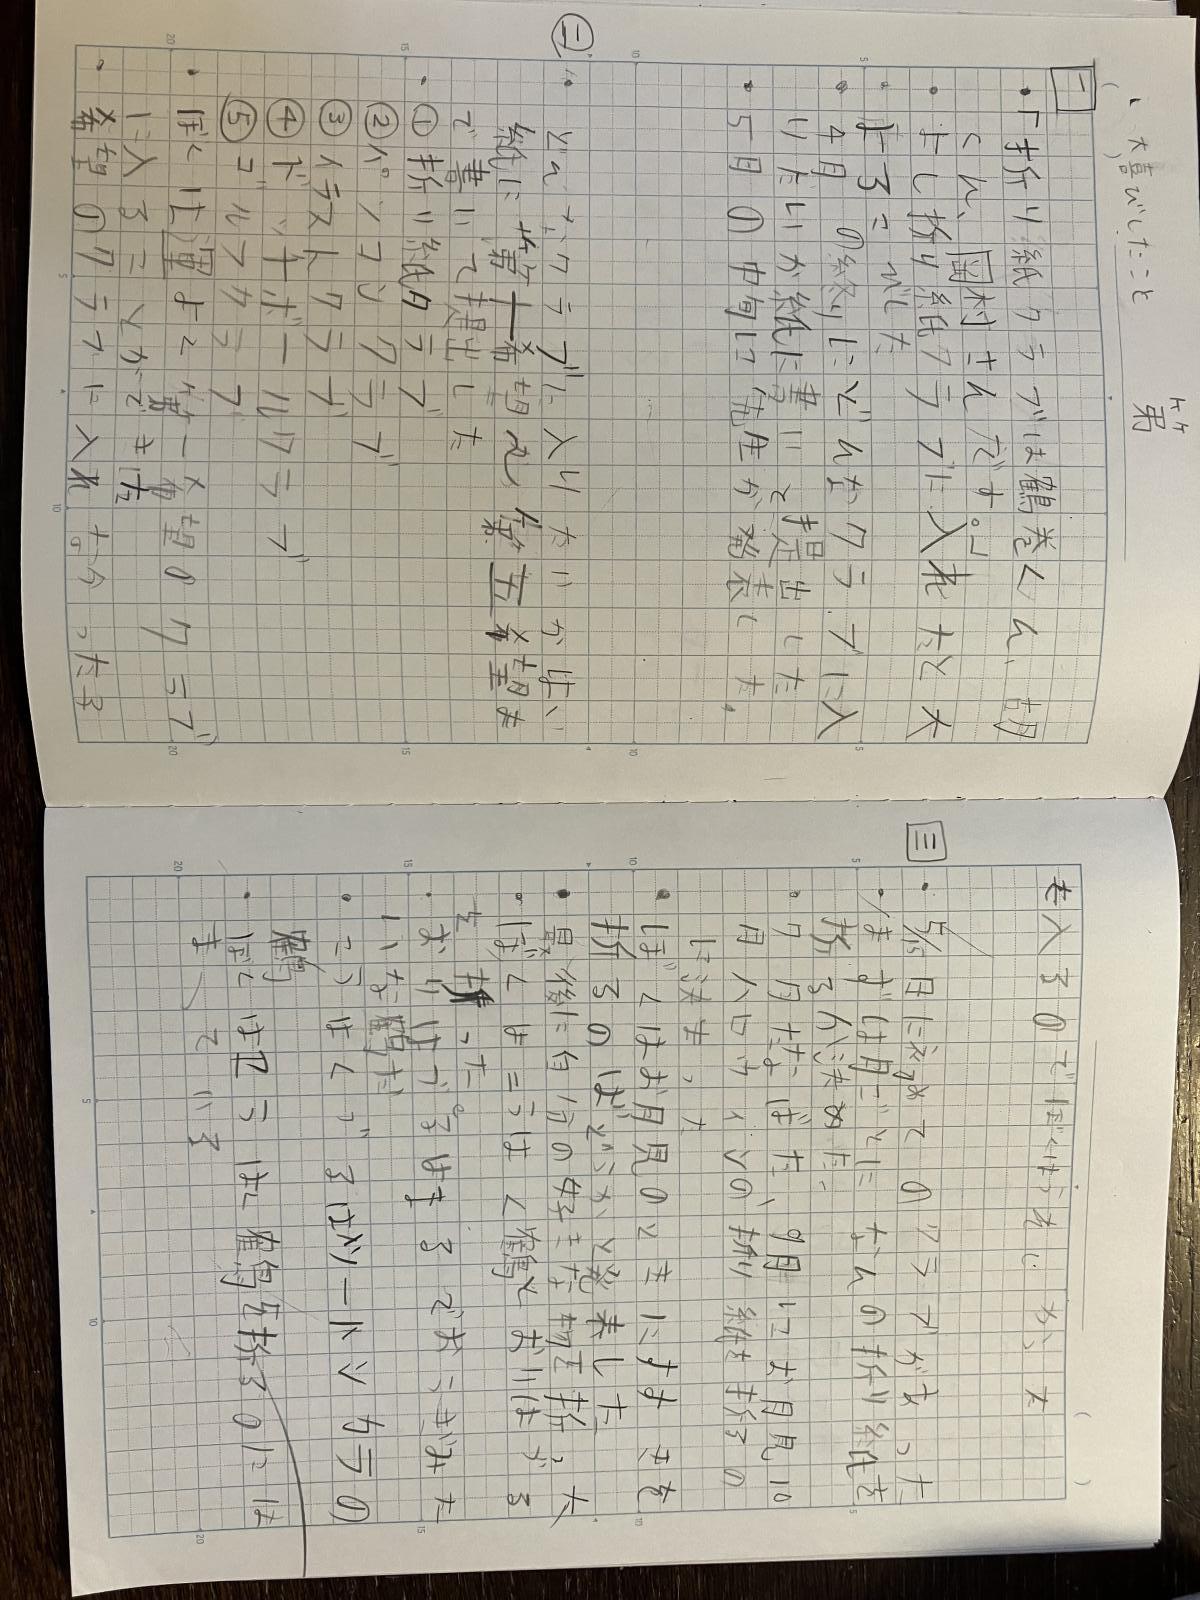 ・大喜びしたこと
弟
一
・「折り紙クラブは鶴巻くん、胡
くん、岡村さんです。」
・よし折り紙クラブに入れたと大
よろこびした
・4月の終りにどんなクラブに入
りたいか紙に書いて提出した
・5月の中旬に先生が発表した。
二
・どんなクラブに入りたいかはい
紙に第一希望から第五希望ま
で書いて提出した
・①折り紙クラブ
②パソコンクラブ
③イラストクラブ
④ドッチボールクラブ
⑤ゴルフクラブ
・ぼくは運よく第一希望のクラブ
に入ることができた
・希望のクラブに入れなかった子
も入るのでぼくはうれしかった
三
・5/15日に初めてのクラブがあった
・まずは月ごとになんの折り紙を
折るか決めた。
・7月たなばた、9月にお月見10
月ハロウィンの折り紙を折るの
に決まった
・ぼくはお月見のときにすすきを
折るのはどうかと発表した
・最後に自分の好きな物を折った
・ぼくはこうはく鶴とおりはづる
を折った
・おりはづるはまるでおうぎみた
いな鶴だ
・こうはくづるはツートンカラーの
鶴
・ぼくはもう はく鶴を折るのには
まっている